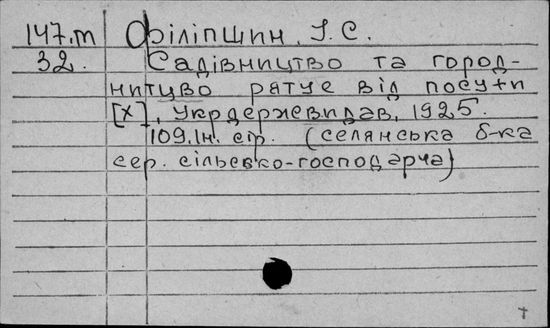 147.m Філіпшин. І. С.
32. Садівництво та город-
ництво рятує від посухи
[Х], Укрдержевидав, 1925.
109, Ін. стр. (селянська б-ка
сер. сільсько-господарча)